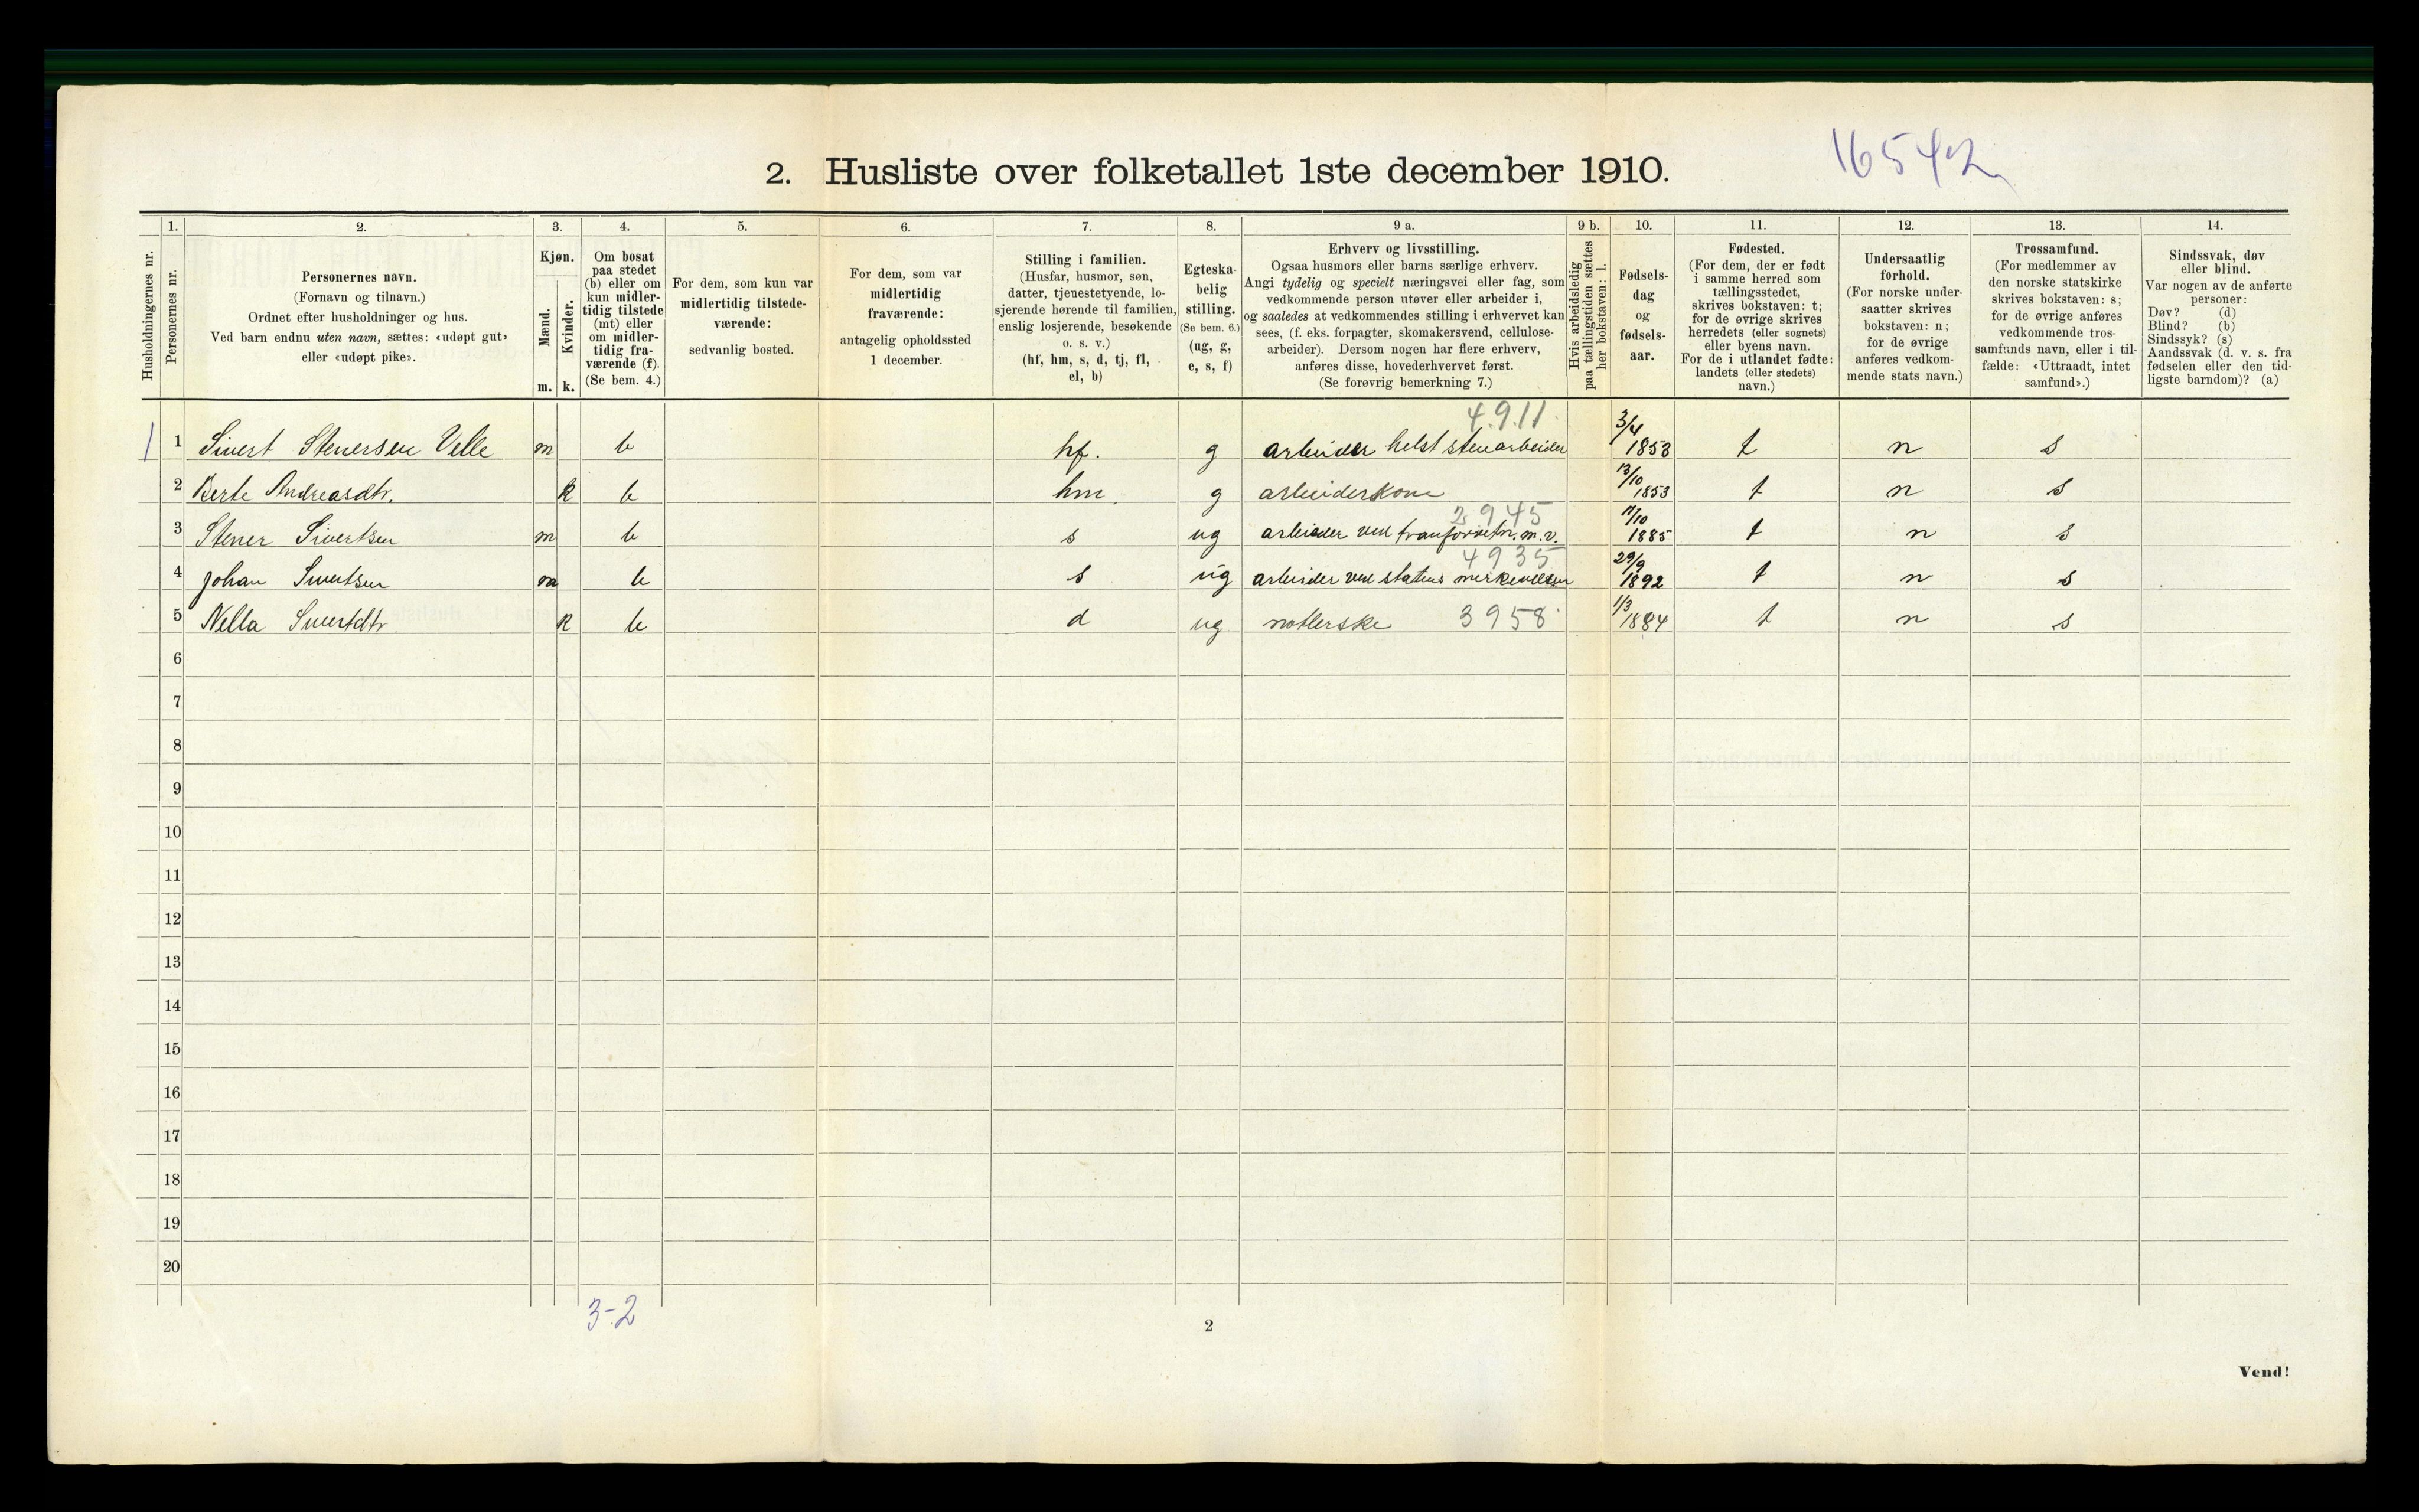 16542
2. Husliste over folketallet 1ste december 1910.
Husholdningernes nr.
1.
Personernes nr.
2.
Personernes navn.
(Fornavn og tilnavn.)
Ordnet efter husholdninger og hus.
Ved barn endnu uten navn, sættes: «udøpt gut»
eller «udøpt pike».
3.
Kjøn.
Mænd.
Kvinder.
m. k.
4.
Om bosat
paa stedet
(b) eller om
kun midler-
tidig tilstede
(mt) eller
om midler-
tidig fra-
værende (f).
(Se bem. 4.)
5.
For dem, som kun var
midlertidig tilstede-
værende:
sedvanlig bosted.
6.
For dem, som var
midlertidig
fraværende:
antagelig opholdssted
1 december.
7.
Stilling i familien.
(Husfar, husmor, søn,
datter, tjenestetyende, lo-
sjerende hørende til familien,
enslig losjerende, besøkende
o. s. v.)
(hf, hm, s, d, tj, fl,
el, b)
8.
Egteska-
belig
stilling.
(Se bem. 6.)
(ug, g,
e, s, f)
9 a.
Erhverv og livsstilling.
Ogsaa husmors eller barns særlige erhverv.
Angi tydelig og specielt næringsvei eller fag, som
vedkommende person utøver eller arbeider i,
og saaledes at vedkommendes stilling i erhvervet kan
sees, (f. eks. forpagter, skomakersvend, cellulose-
arbeider). Dersom nogen har flere erhverv,
anføres disse, hovederhvervet først.
(Se forøvrig bemerkning 7.)
9 b.
Hvis arbeidsledig
paa tællingstiden sættes
her bokstaven: l.
10.
Fødsels-
dag
og
fødsels-
aar.
11.
Fødested.
(For dem, der er født
i samme herred som
tællingsstedet,
skrives bokstaven: t;
for de øvrige skrives
herredets (eller sognets)
eller byens navn.
For de i utlandet fødte:
landets (eller stedets)
navn.)
12.
Undersaatlig
forhold.
(For norske under-
saatter skrives
bokstaven: n;
for de øvrige
anføres vedkom-
mende stats navn.)
13.
Trossamfund.
(For medlemmer av
den norske statskirke
skrives bokstaven: s;
for de øvrige anføres
vedkommende tros-
samfunds navn, eller i til-
fælde: «Uttraadt, intet
samfund».)
14.
Sindssvak, døv
eller blind.
Var nogen av de anførte
personer:
Døv? (d)
Blind? (b)
Sindssyk? (s)
Aandssvak (d. v. s. fra
fødselen eller den tid-
ligste barndom)? (a)
4.9.11.
1 1 Sivert Stenersen Velle m b hf. g arbeider helst stenarbeider 3/4 1853 t n s
2 Berte Andreasdtr. k b hm. g arbeiderskone 13/10 1853 t n s
2945
3 Stener Sivertsen m b s ug arbeider ved tranforretn. m.v. 11/10 1885 t n s
4935
4 Johan Sivertsen m b s ug arbeider ved statens merkevesen 29/9 1892 t n s
5 Nella Sivertdtr k b d ug notlerske 3958 1/3 1884 t n s
6
7
8
9
10
11
12
13
14
15
16
17
18
19
20
3-2
2
Vend!